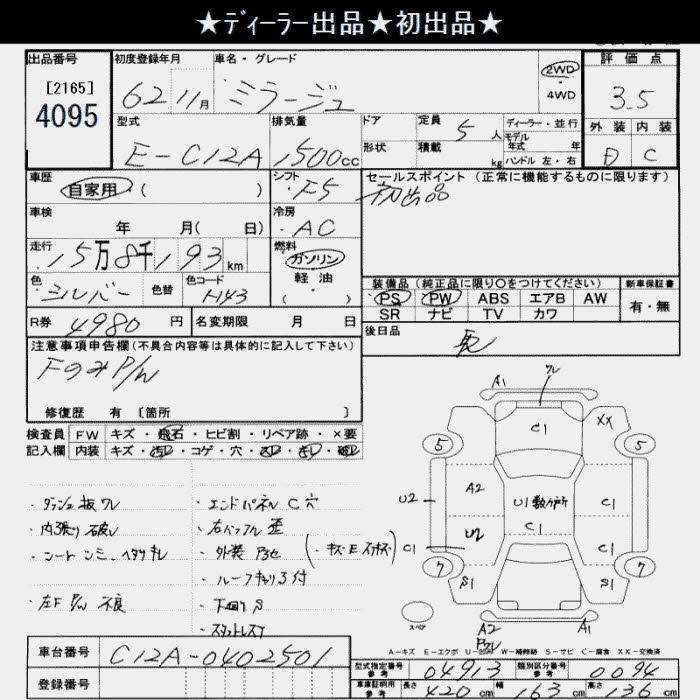 ★ディーラー出品★初出品★
出品番号 初度登録年月 車名・グレード 評価点
[2165]
4095
62年11月 ミラージュ 2WD ・4WD 3.5
型式 排気量 ドア 定員 5人 ディーラー・並行 外装 内装
E-C12A 1500cc 形状 積載 kg モデル年式 年 ハンドル 左・右 D C
車歴 自家用 ( ) シフト F5 セールスポイント (正常に機能するものに限ります)
初出品
車検 年 月( 日) 冷房 AC
走行 15万8千193km 燃料 ガソリン 軽油 ( )
色 シルバー 色替 色コード H43
装備品 (純正品に限り○をつけてください) 新車保証書
PS PW ABS エアB AW 有・無
SR ナビ TV カワ
R券 4980円 名変期限 月 日 後日品
注意事項申告欄(不具合内容等は具体的に記入して下さい)
FのみP/W
修復歴 有 [箇所 ]
検査員 FW キズ・飛石・ヒビ割・リペア跡・×要
記入欄 内装 キズ・汚レ・コゲ・穴
・ダッシュ板ワレ
・内張り破レ
・シート シミ、ヘタリ キレ
・左F P/W 不良
・エンドパネル C穴
・右バッフル 歪
・外装
・ルーフキャリヤ付
・下廻りS
・スタッドレス
A1 ワレ
C1 XX
5 5
A2 U2 U1数ケ所 C1
U2 C1 C1 C1
7 7
S1 S1
スペア A2 ワレ A1
A-キズ E-エクボ U-凹み W-補修跡 S-サビ C-腐食 XX-交換済
車台番号 C12A-0402501
登録番号
型式指定番号 参考 04913 類別区分番号 参考 0094
車庫証明用 参考 長さ 420cm 幅 163cm 高さ 136cm